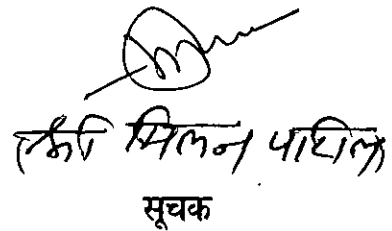 श्री मिलन पाटील
सूचक